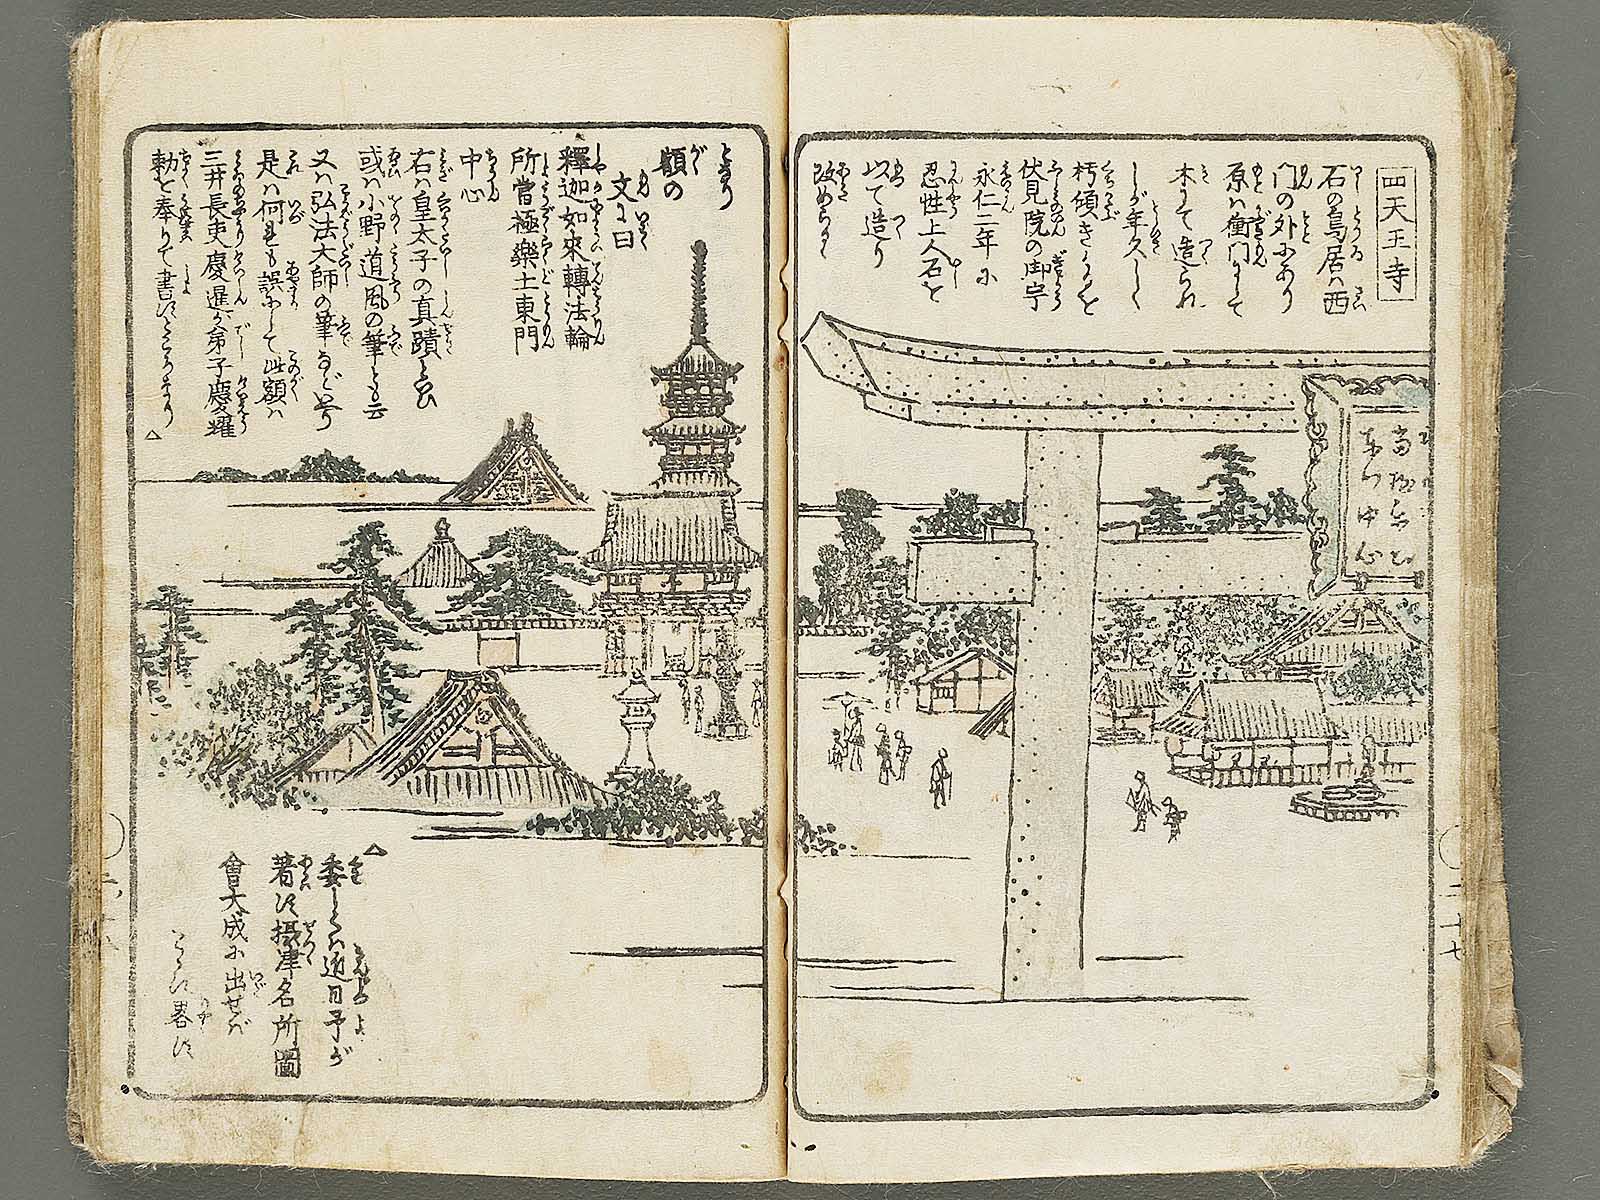 四天王寺
石の鳥居ハ西
門の外にあり
原ハ衝門にして
木にて造られ
しが年久しく
朽傾きけるを
伏見院の御宇
永仁二年に
忍性上人石を
以て造り
改めらる
となり
額の
文に曰
釋迦如來轉法輪
所當極樂土東門
中心
右ハ皇太子の真蹟といひ
或ハ小野道風の筆とも云
又ハ弘法大師の筆など
是ハ何れも誤にして此額ハ
三井長吏慶暹が弟子慶耀
勅を奉りて書すところなり
△
△
委しくハ近日予が
著す摂津名所圖
會大成に出せバ
こゝに畧す